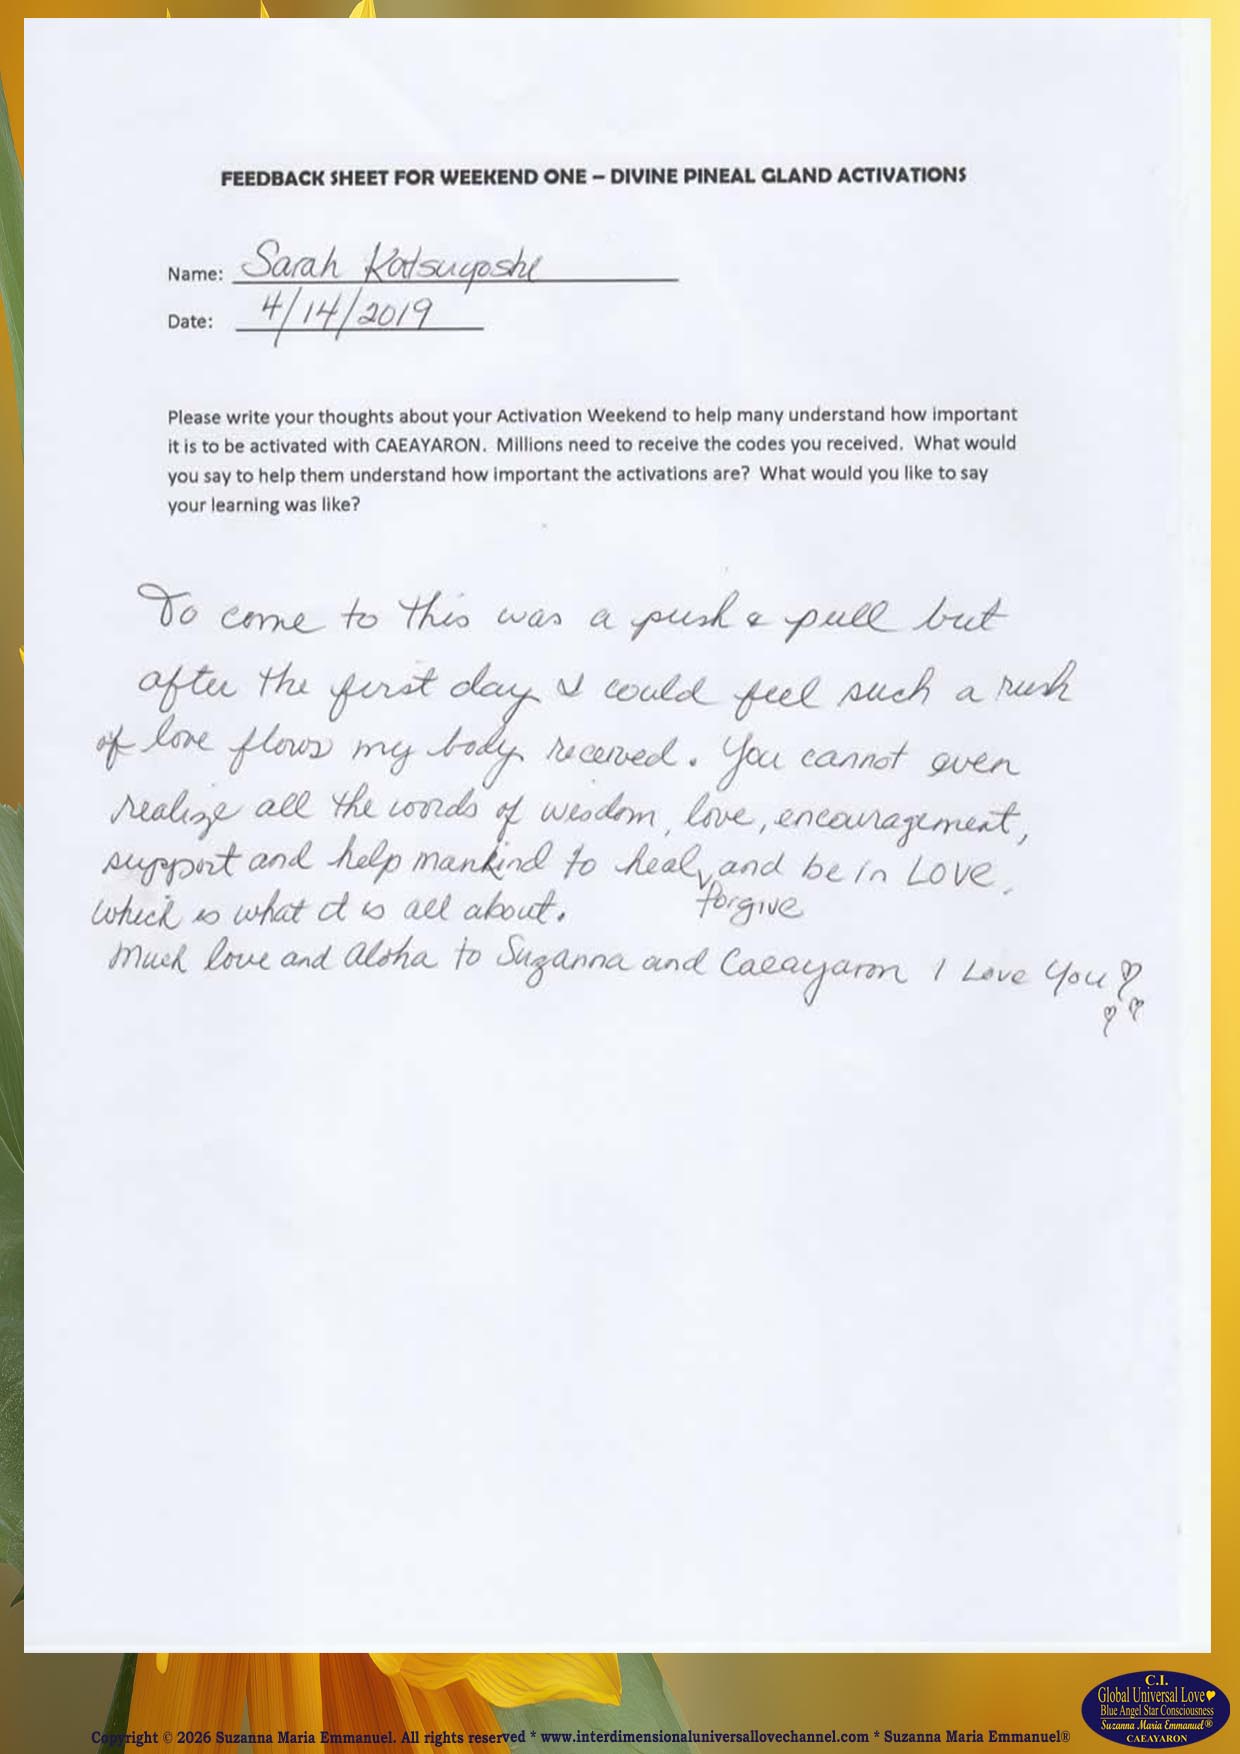 FEEDBACK SHEET FOR WEEKEND ONE – DIVINE PINEAL GLAND ACTIVATIONS
Name: Sarah Katsuyoshi
Date: 4/14/2019
Please write your thoughts about your Activation Weekend to help many understand how important
it is to be activated with CAEAYARON. Millions need to receive the codes you received. What would
you say to help them understand how important the activations are? What would you like to say
your learning was like?
To come to this was a push & pull but
after the first day I could feel such a rush
of love flows my body received. You cannot even
realize all the words of wisdom, love, encouragement,
support and help mankind to heal, and be in LOVE.
forgive
which is what it is all about.
Much love and Aloha to Suzanna and Caeayaron I Love You
C.I.
Global Universal Love
Blue Angel Star Consciousness
Suzanna Maria Emmanuel®
CAEAYARON
Copyright © 2026 Suzanna Maria Emmanuel. All rights reserved * www.interdimensionaluniversallovechannel.com * Suzanna Maria Emmanuel®